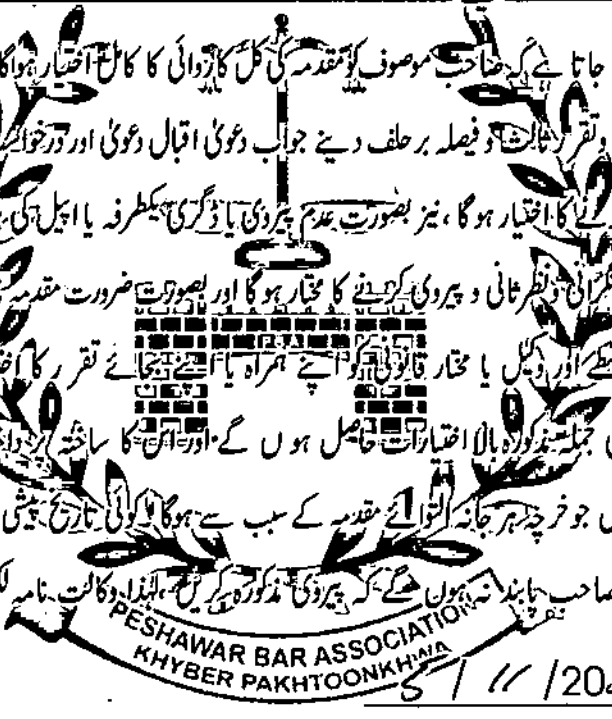 جاتا ہے کہ صاحب موصوف کو مقدمہ کی کل کاروائی کا کامل اختیار ہوگا
و تقرر ثالث و فیصلہ بر حلف دینے جواب دعویٰ اقبال دعویٰ اور درخواست
نے کا اختیار ہو گا ، نیز بصورت عدم پیروی یا ڈگری یکطرفہ یا اپیل کی
نگرانی و نظرثانی و پیروی کرنے کا مختار ہو گا اور بصورت ضرورت مقدمہ
اور وکیل یا مختار قانونی کو اپنے ہمراہ یا اپنے بجائے تقرر کا
P.B.A
جملہ مذکورہ بالا اختیارات حاصل ہوں گے اور اس کا ساختہ
جو خرچہ ہر جانہ التوائے مقدمہ کے سبب سے ہوگا کوئی تاریخ پیشی
صاحب پابند نہ ہوں گے کہ پیروی مذکورہ کریں ، لہٰذا وکالت نامہ
PESHAWAR BAR ASSOCIATION
KHYBER PAKHTOONKHWA
5 / 11 /20